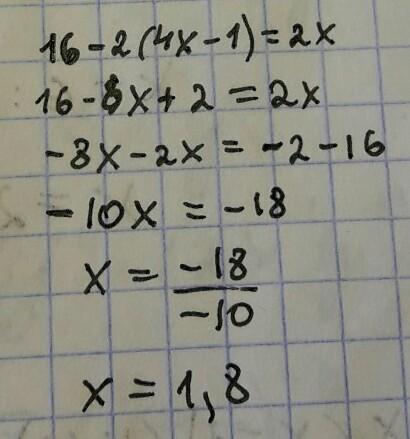 16-2(4x-1)=2x
16-8x+2=2x
-8x-2x=-2-16
-10x=-18
x=\frac{-18}{-10}
x=1,8